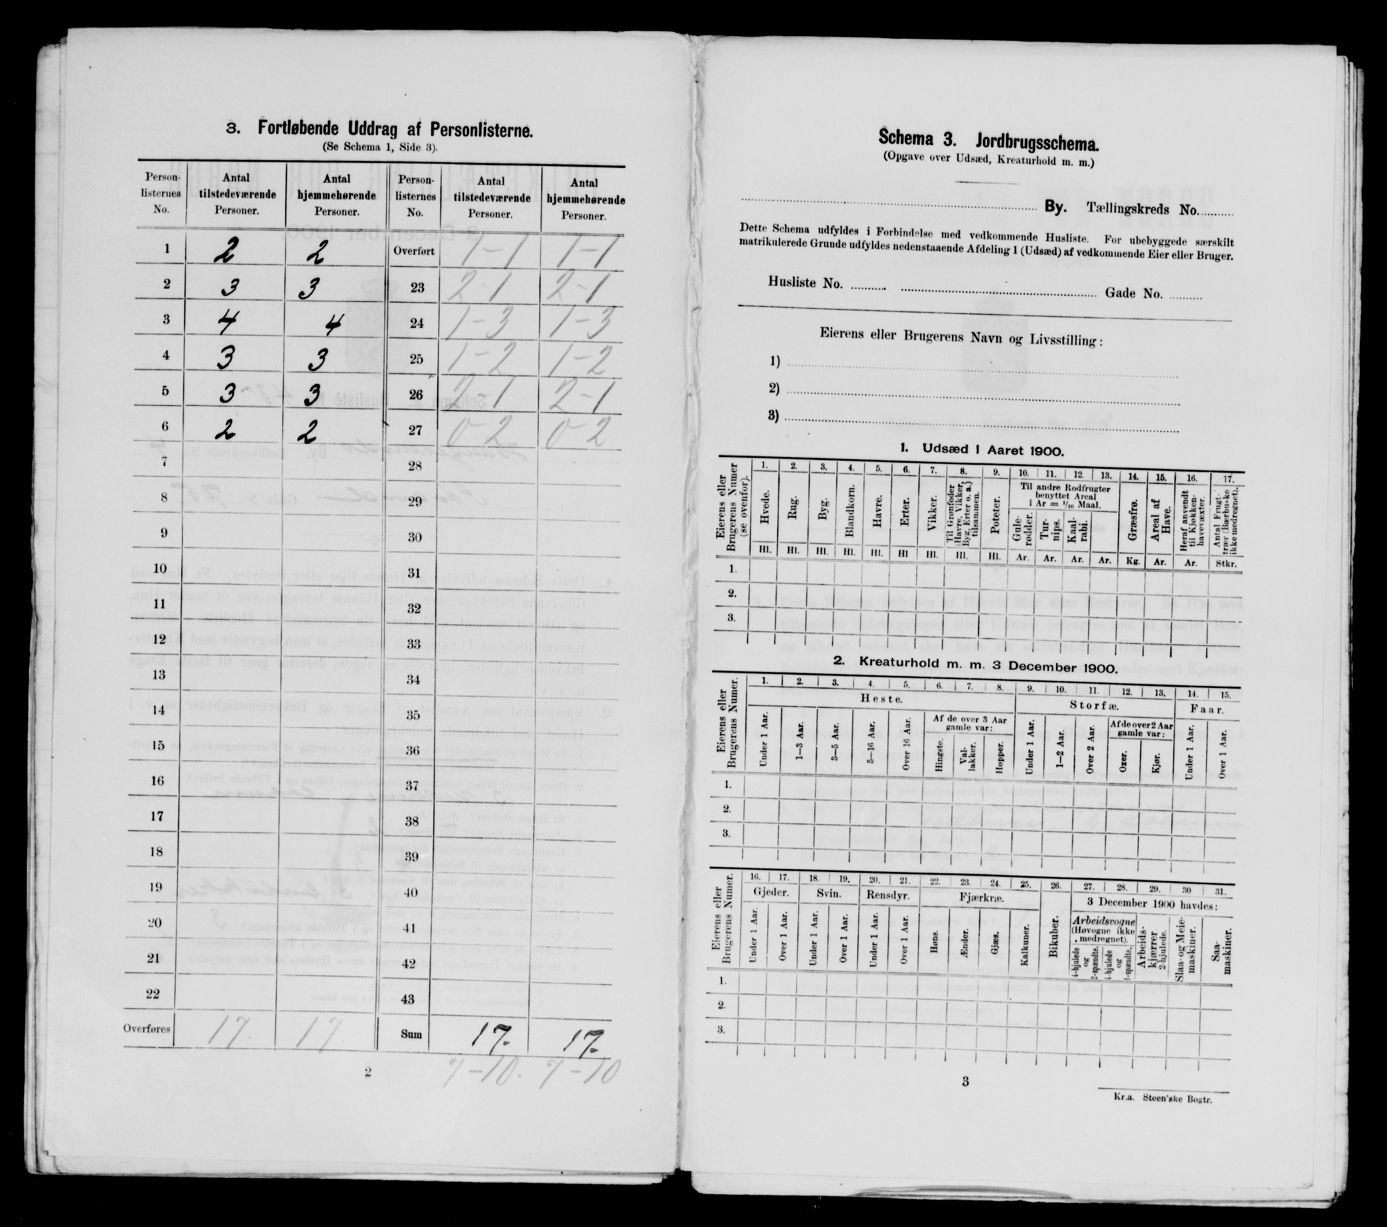 3. Fortløbende Uddrag af Personlisterne.
(Se Schema 1, Side 3).
Person-listernes No. | Antal tilstedeværende Personer. | Antal hjemmehørende Personer. | Person-listernes No. | Antal tilstedeværende Personer. | Antal hjemmehørende Personer.
1 2 2 Overført 1-1 1-1
2 3 3 23 2-1 2-1
3 4 4 24 1-3 1-3
4 3 3 25 1-2 1-2
5 3 3 26 2-1 2-1
6 2 2 27 0-2 0-2
7 28
8 29
9 30
10 31
11 32
12 33
13 34
14 35
15 36
16 37
17 38
18 39
19 40
20 41
21 42
22 43
Overføres 17. 17 Sum 17. 17.
7-10. 7-10
2
Schema 3. Jordbrugsschema.
(Opgave over Udsæd, Kreaturhold m. m.)
By. Tællingskreds No.
Dette Schema udfyldes i Forbindelse med vedkommende Husliste. For ubebyggede særskilt
matrikulerede Grunde udfyldes nedenstaaende Afdeling 1 (Udsæd) af vedkommende Eier eller Bruger.
Husliste No. Gade No.
Eierens eller Brugerens Navn og Livsstilling:
1)
2)
3)
1. Udsæd i Aaret 1900.
Eierens eller Brugerens Numer (se ovenfor).
1. 2. 3. 4. 5. 6. 7. 8. 9. 10. 11. 12. 13. 14. 15. 16. 17.
Hvede. Rug. Byg. Blandkorn. Havre. Erter. Vikker. Til Grønfoder (Havre, Vikker, Byg, Erter o. a.) tilsammen. Poteter.
Til andre Rodfrugter benyttet Areal i Ar = 1/10 Maal.
Gulerødder. Turnips. Kaalrabi.
Græsfrø. Areal af Have. Heraf anvendt til Kjøkkenhavevæxter. Antal Frugttrær (Bærbuske ikke medregnet).
Hl. Hl. Hl. Hl. Hl. Hl Hl. Hl. Hl. Ar. Ar. Ar. Ar. Kg. Ar. Ar. Stkr.
1.
2.
3.
2. Kreaturhold m. m. 3 December 1900.
Eierens eller Brugerens Numer.
1. 2. 3. 4. 5. 6. 7. 8. 9. 10. 11. 12. 13. 14. 15.
Heste. Storfæ. Faar.
Under 1 Aar. 1—3 Aar. 3—5 Aar. 5—16 Aar. Over 16 Aar.
Af de over 3 Aar gamle var:
Hingste. Vallakker. Hopper.
Under 1 Aar. 1—2 Aar. Over 2 Aar.
Af de over 2 Aar gamle var:
Oxer. Kjør.
Under 1 Aar. Over 1 Aar.
1.
2.
3.
Eierens eller Brugerens Numer.
16. 17. 18. 19. 20. 21. 22. 23. 24. 25. 26. 27. 28. 29. 30 31.
Gjeder. Svin. Rensdyr. Fjærkræ. 3 December 1900 havdes:
Under 1 Aar. Over 1 Aar. Under 1 Aar. Over 1 Aar. Under 1 Aar. Over 1 Aar.
Høns. Ænder. Gjæs. Kalkuner. Bikuber.
Arbeidsvogne (Høvogne ikke medregnet).
4-hjulede og 2-spændte. 4-hjulede og 1-spændte.
Arbeidskjærrer 2-hjulede. Slaa- og Meiemaskiner. Saamaskiner.
1.
2.
3.
3
Kr.a. Steen'ske Bogtr.